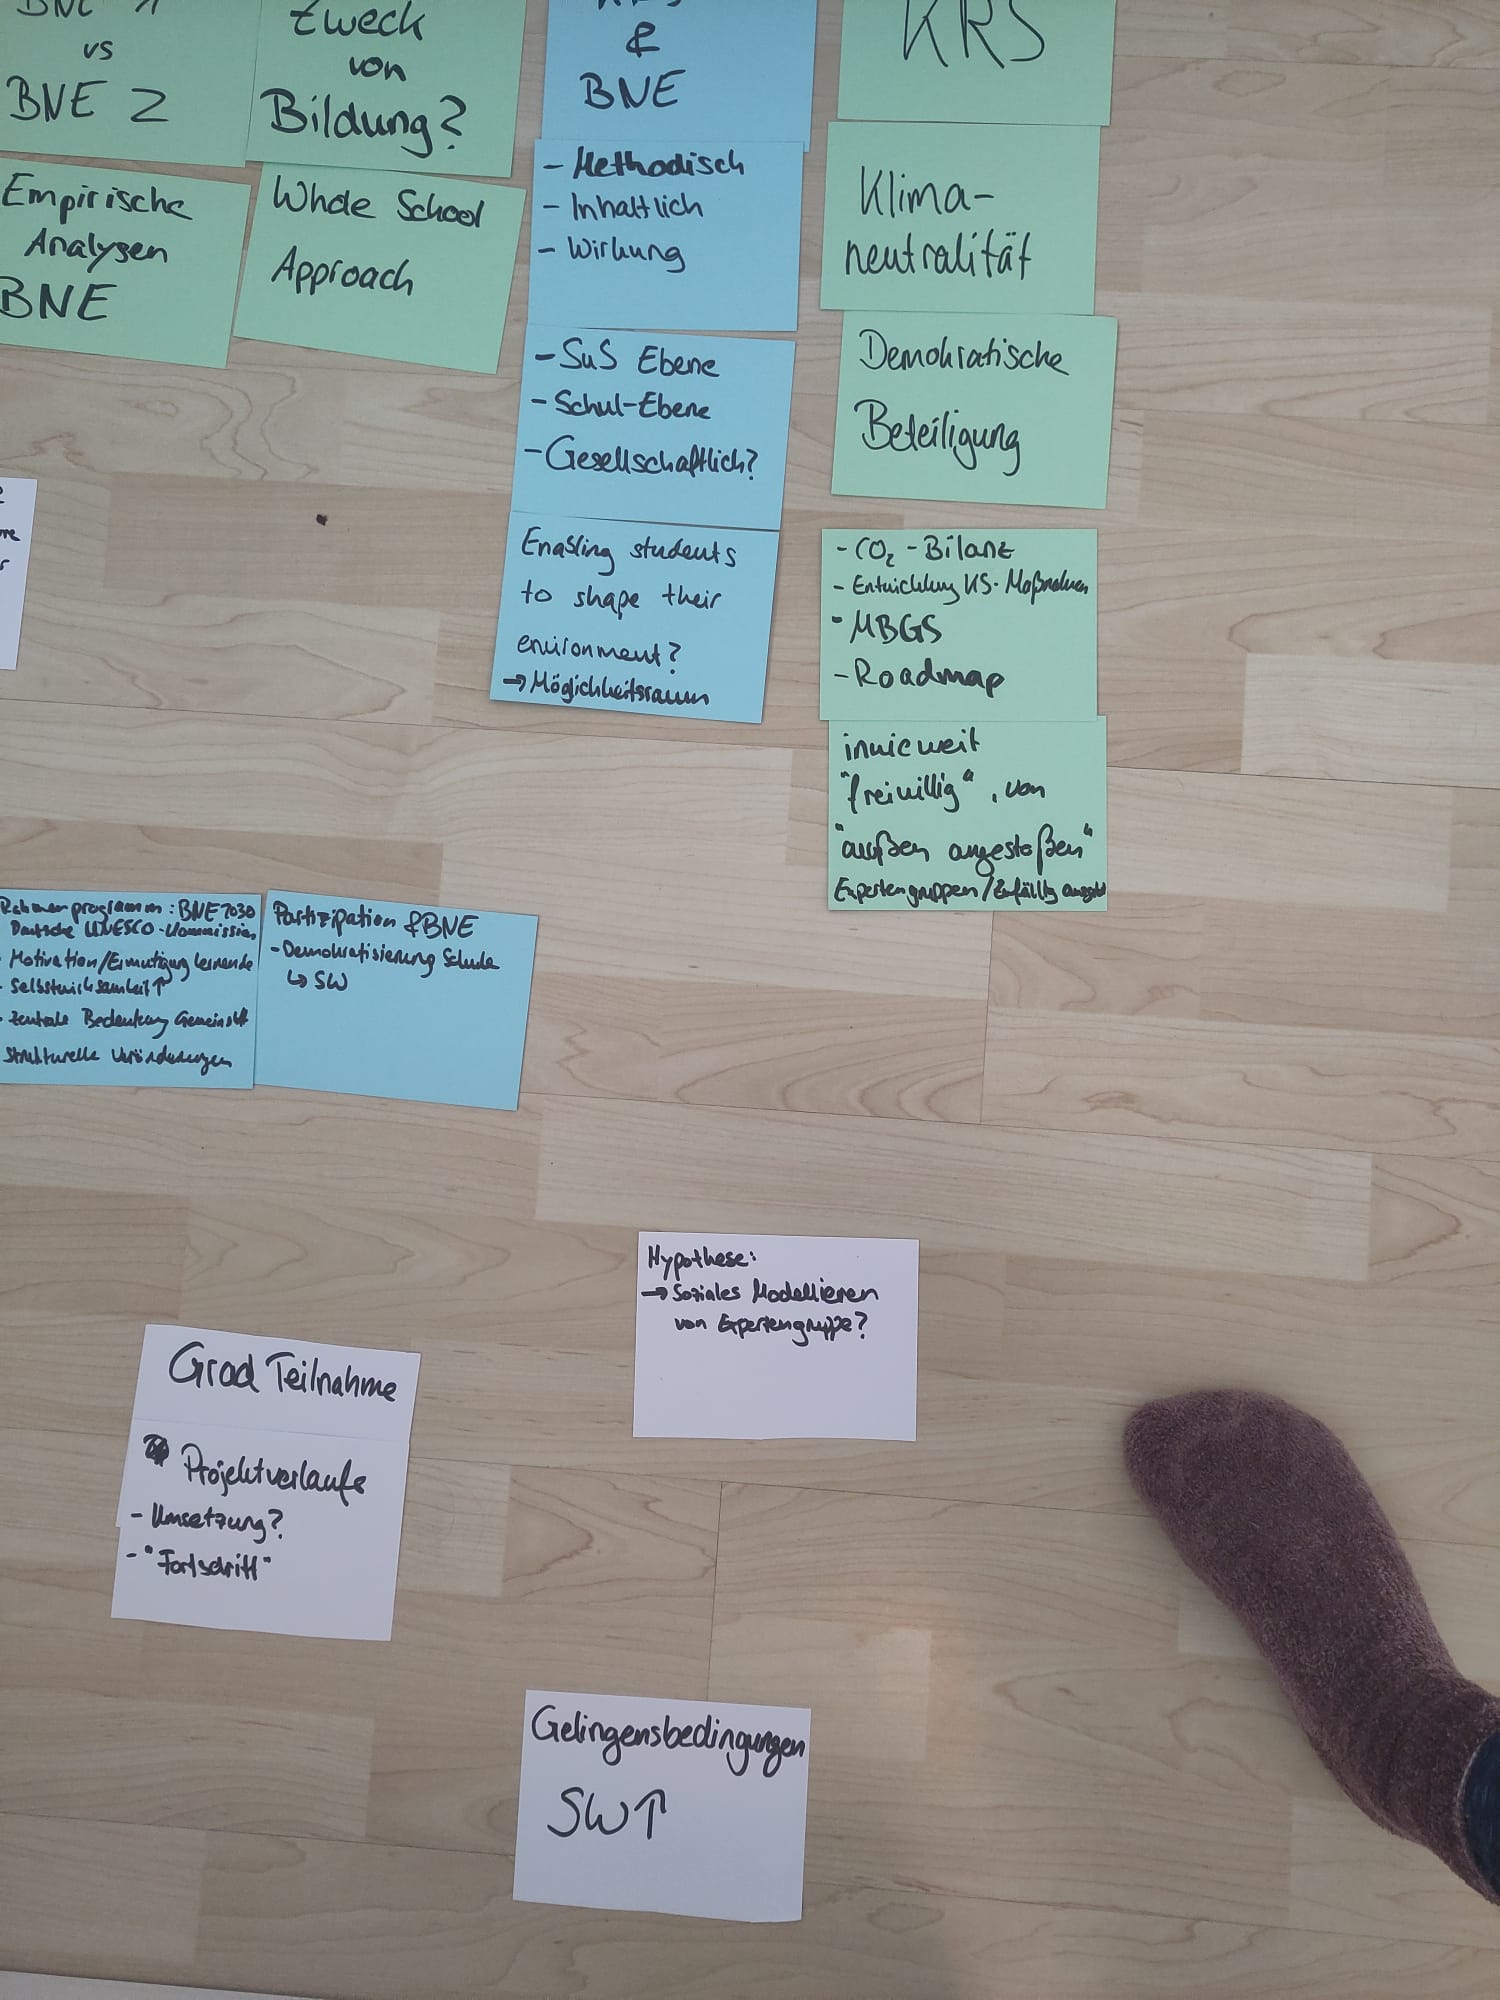 BNE 1
vs
BNE 2
Zweck
von
Bildung?
&
BNE
KRS
Empirische
Analysen
BNE
Whole School
Approach
- Methodisch
- Inhaltlich
- Wirkung
Klima-
neutralität
- SuS Ebene
- Schul-Ebene
- Gesellschaftlich?
Demokratische
Beteiligung
Enabling students
to shape their
environment?
→ Möglichkeitsraum
- CO₂ - Bilanz
- Entwicklung KS-Maßnahmen
- MBGS
- Roadmap
inwieweit
"freiwillig", von
"außen angestoßen"
Expertengruppen / Zufällig
Rahmenprogramm: BNE 2030
Deutsche UNESCO-Kommission
- Motivation/Ermutigung Lernende
- Selbstwirksamkeit↑
- zentrale Bedeutung
Strukturelle Veränderungen
Partizipation & BNE
- Demokratisierung Schule
↳ SW
Hypothese:
→ Soziales Modellieren
von Expertengruppe?
Grad Teilnahme
Projektverlaufe
- Umsetzung?
- "Fortschritt"
Gelingensbedingungen
SW↑